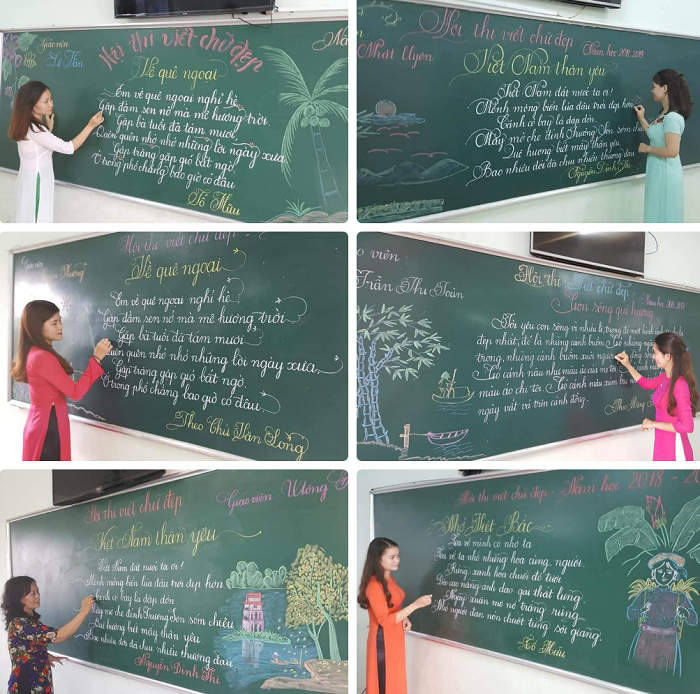 Giáo viên
Hội thi viết chữ đẹp
Về quê ngoại
Em về quê ngoại nghỉ hè
Gặp đầm sen nở mà mê hương trời.
Gặp bà tuổi đã tám mươi,
Quên quên nhớ nhớ những lời ngày xưa
Gặp trăng gặp gió bất ngờ
Ở trong phố chẳng bao giờ có đâu
Tố Hữu
Hội thi viết chữ đẹp
Năm học 2018-2019
Nhật Uyên
Việt Nam thân yêu
Việt Nam đất nước ta ơi!
Mênh mông biển lúa đâu trời đẹp hơn
Cánh cò bay lả dập dờn,
Mây mờ che đỉnh Trường Sơn sớm chiều
Quê hương biết mấy thân yêu
Bao nhiêu đời đã chịu nhiều thương đau
Nguyễn Đình Thi
Hội thi viết chữ đẹp
Giáo viên
Phương
Về quê ngoại
Em về quê ngoại nghỉ hè
Gặp đầm sen nở mà mê hương trời
Gặp bà tuổi đã tám mươi
Quên quên nhớ nhớ những lời ngày xưa
Gặp trăng gặp gió bất ngờ
Ở trong phố chẳng bao giờ có đâu.
Theo Chử Văn Long
viên
Trần Thu Toàn
Hội thi viết chữ đẹp
Năm học
Con sông quê hương
Tôi yêu con sông vì nhiều lẽ, trong đó một hình ảnh
đẹp nhất, đó là những cánh buồm. Có những ngày
trong, những cánh buồm xuôi ngược
Có cánh nâu như màu áo của mẹ tôi.
màu áo chị tôi. Có cánh màu xám
ngày vất vả trên cánh đồng.
Theo Băng
Hội thi viết chữ đẹp
Giáo viên
Việt Nam thân yêu
Việt Nam đất nước ta ơi!
Mênh mông biển lúa đâu trời đẹp hơn
Cánh cò bay lả dập dờn
Mây mờ che đỉnh Trường Sơn sớm chiều
Quê hương biết mấy thân yêu
Bao nhiêu đời đã chịu nhiều thương đau
Nguyễn Đình Thi
Hội thi viết chữ đẹp Năm học 2018 - 20
Nhớ Việt Bắc
Ta về mình có nhớ ta
Ta về ta nhớ những hoa cùng người.
Rừng xanh hoa chuối đỏ tươi
Đèo cao nắng ánh dao gài thắt lưng.
Ngày xuân mơ nở trắng rừng
Nhớ người đan nón chuốt từng sợi giang.
Tố Hữu